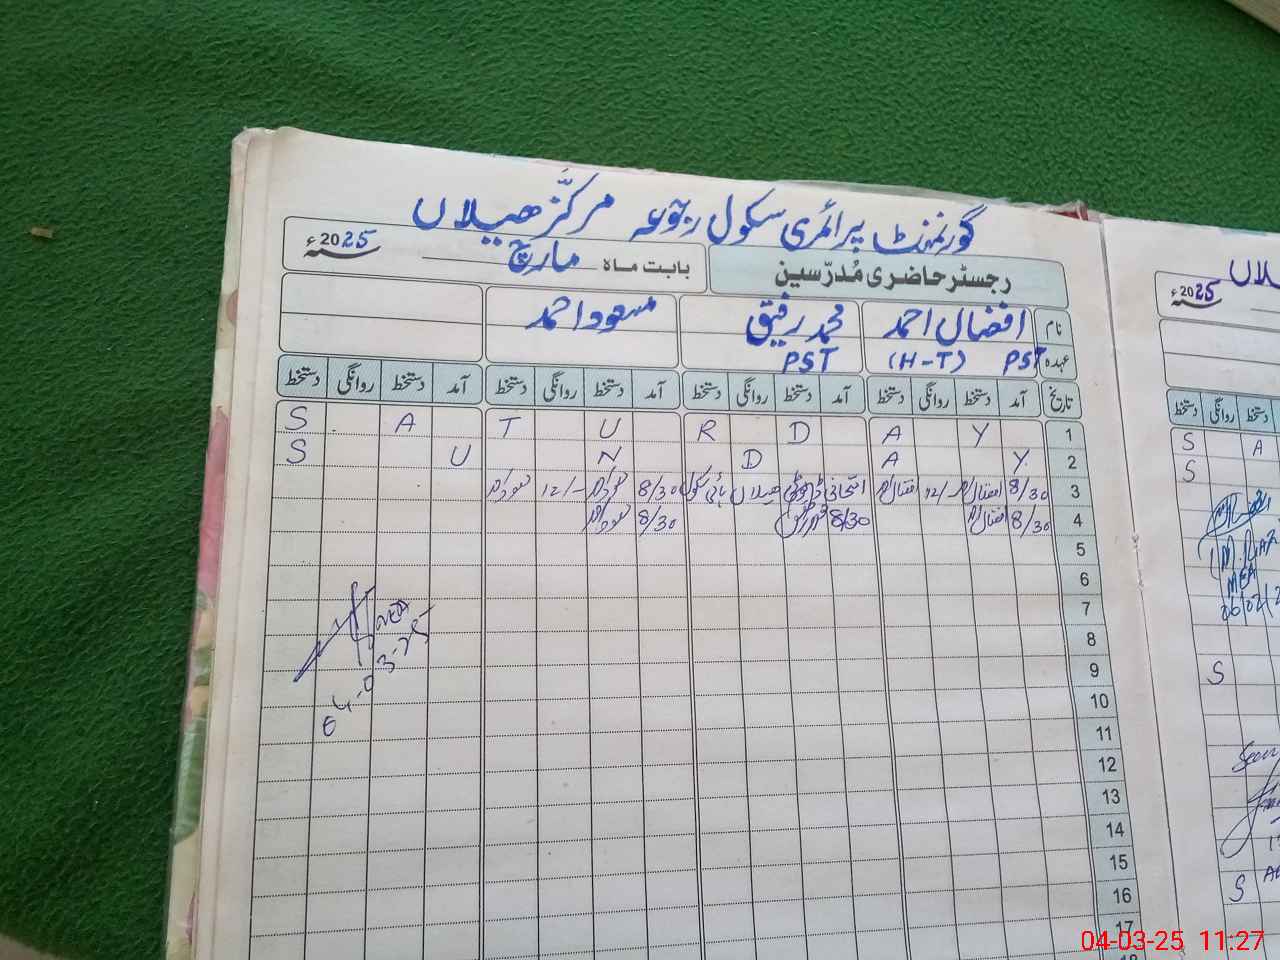 گورنمنٹ پرائمری سکول ربوعہ مرکز ھیلاں
رجسٹر حاضری مُدرّسین
بابت ماہ مارچ
سنہ 2025ء
نام افضال احمد محمد رفیق مسعود احمد
عہدہ PST (H-T) PST
تاریخ آمد دستخط روانگی دستخط آمد دستخط روانگی دستخط آمد دستخط روانگی دستخط آمد دستخط روانگی دستخط
1 S A T U R D A Y
2 S U N D A Y
3 8/30 افضال احمد 12/- افضال احمد امتحانی ڈیوٹی ھیلاں ہائی سکول 8/30 12/-
4 8/30 8/30 8/30
5
6
7
8
9
10
11
12
13
14
15
16
17
18
MEA
04-03-25
سنہ 2025ء
دستخط روانگی دستخط
S A
S
MEA
06/02/2
S
S
04-03-25 11:27